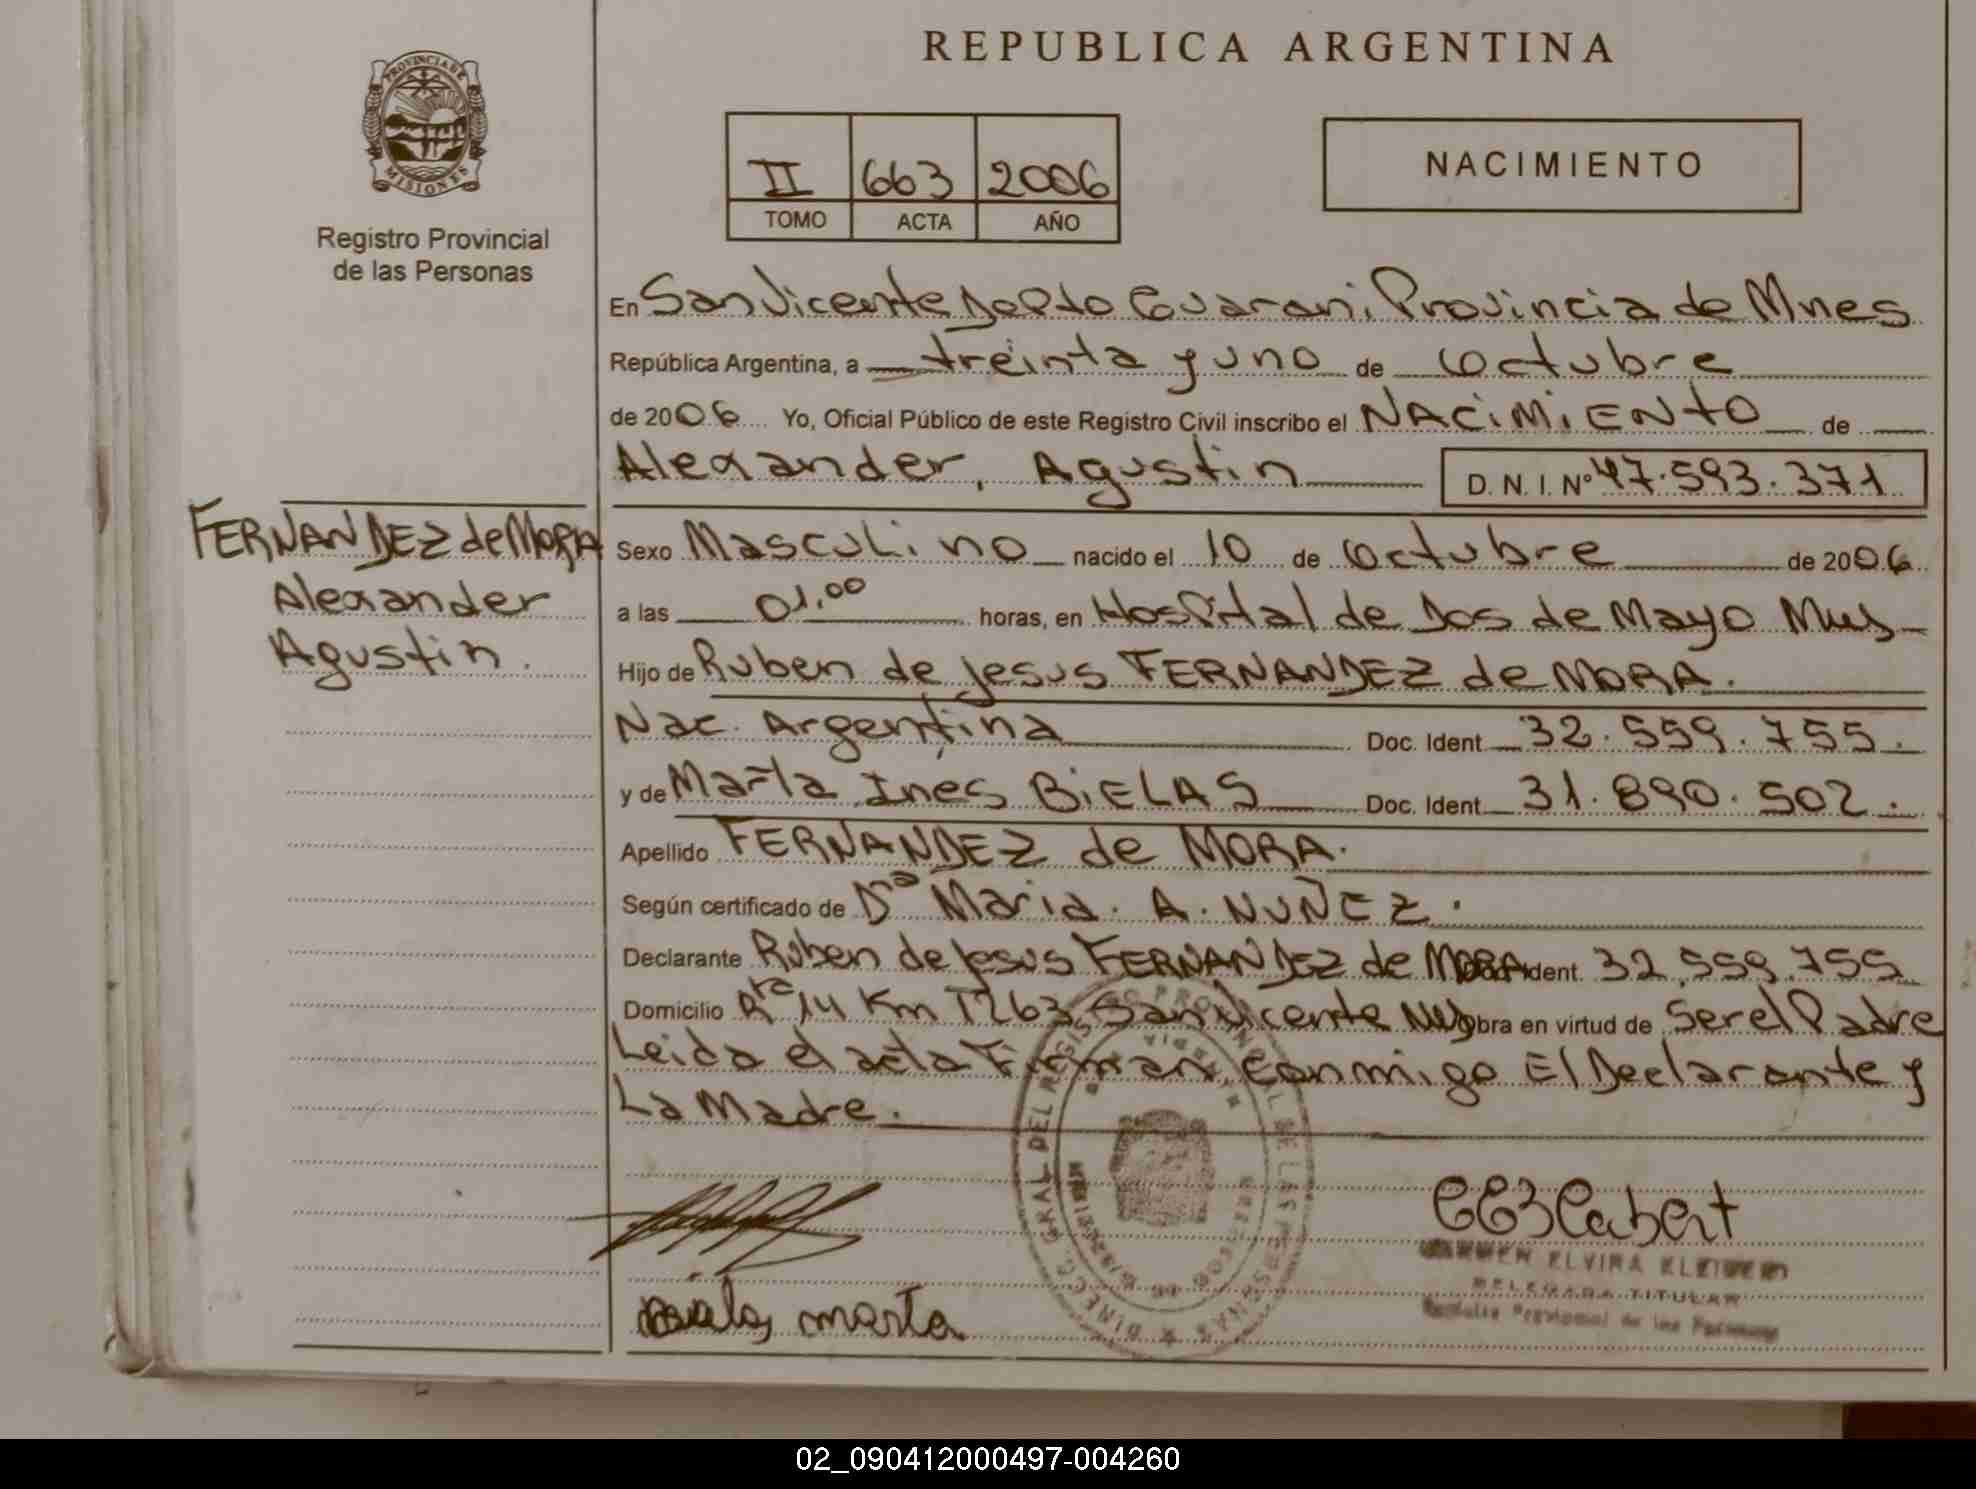 REPUBLICA ARGENTINA
PROVINCIA DE
MISIONES
Registro Provincial
de las Personas
II 663 2006
TOMO ACTA AÑO
NACIMIENTO
En San Vicente Depto Guarani, Provincia de Mnes
República Argentina, a treinta y uno de octubre
de 2006 Yo, Oficial Público de este Registro Civil inscribo el NACIMIENTO de
Alexander, Agustin D. N. I. Nº 47.593.371
FERNANDEZ de MORA
Alexander
Agustin.
Sexo Masculino nacido el 10 de octubre de 2006
a las 01,00 horas, en Hospital de Dos de Mayo Mnes
Hijo de Ruben de Jesus FERNANDEZ de MORA.
Nac. Argentina Doc. Ident 32.559.755.
y de Marta Ines BIELAS Doc. Ident 31.890.502.
Apellido FERNANDEZ de MORA.
Según certificado de Dra Maria. A. NUÑEZ.
Declarante Ruben de Jesus FERNANDEZ de MORA Doc. Ident. 32.559.755
Domicilio Rta 14 Km 1263 San Vicente Mnes Obra en virtud de Ser el Padre
Leida el acta Firman conmigo El Declarante y
La Madre.
marta
ELVIRA
DELEGADA TITULAR
Registro Provincial de las Personas
02_090412000497-004260